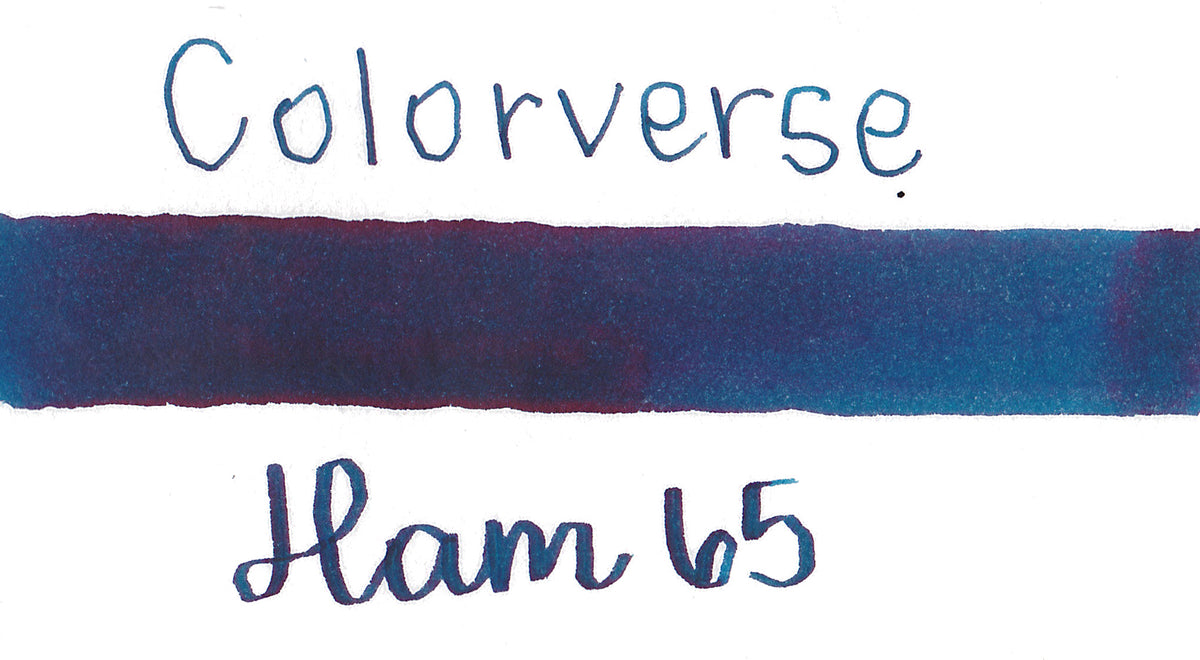 Colorverse
Ham 65